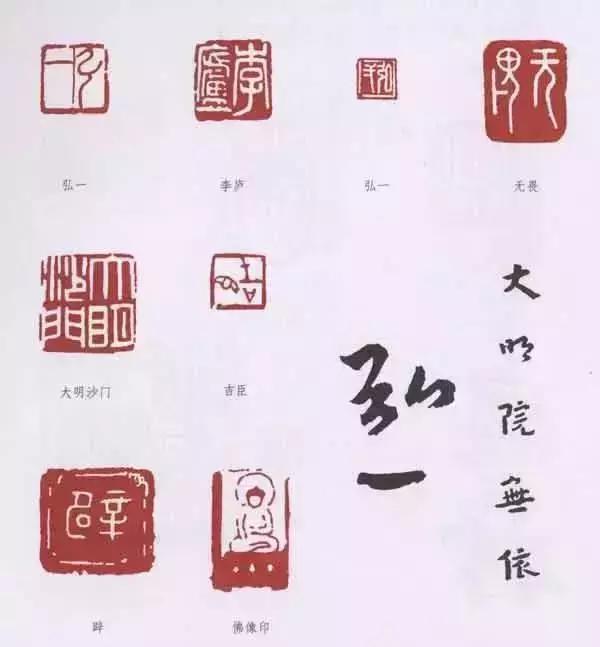 弘一
李庐
弘一
无畏
大明沙门
吉臣
弘一
大明院無依
辟
佛像印